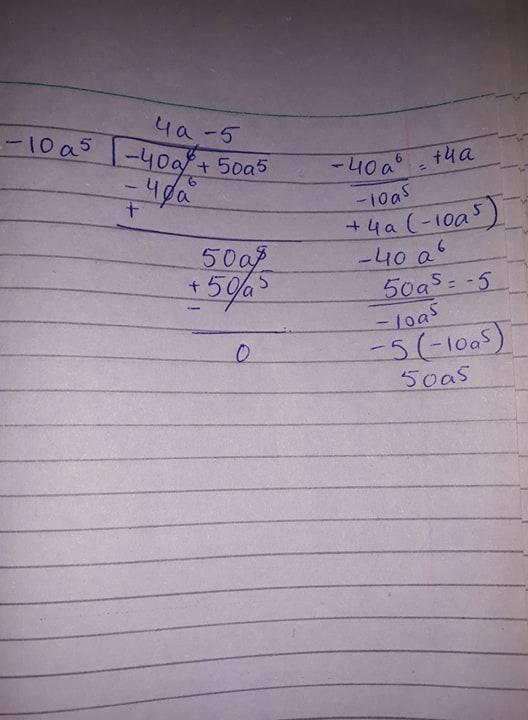 4a - 5
-10a⁵ -40a⁶ + 50a⁵
- 40a⁶
+
50a⁵
+ 50a⁵
-
0
-40a⁶ = +4a
-10a⁵
+4a (-10a⁵)
-40 a⁶
50a⁵ = -5
-10a⁵
-5 (-10a⁵)
50a⁵